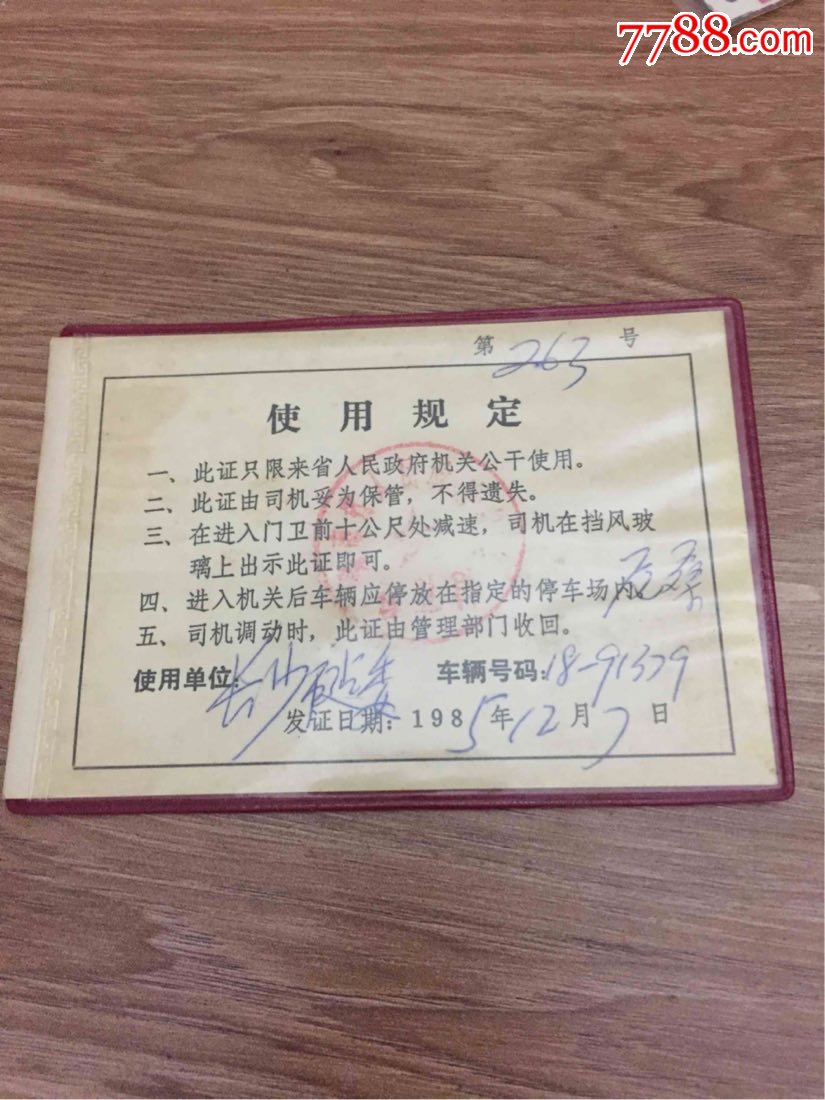 7788.com
第 263 号
使用规定
一、此证只限来省人民政府机关公干使用。
二、此证由司机妥为保管，不得遗失。
三、在进入门卫前十公尺处减速，司机在挡风玻
璃上出示此证即可。
四、进入机关后车辆应停放在指定的停车场内。
五、司机调动时，此证由管理部门收回。
使用单位：长沙 委 车辆号码：18-91379
发证日期：1985年12月7日